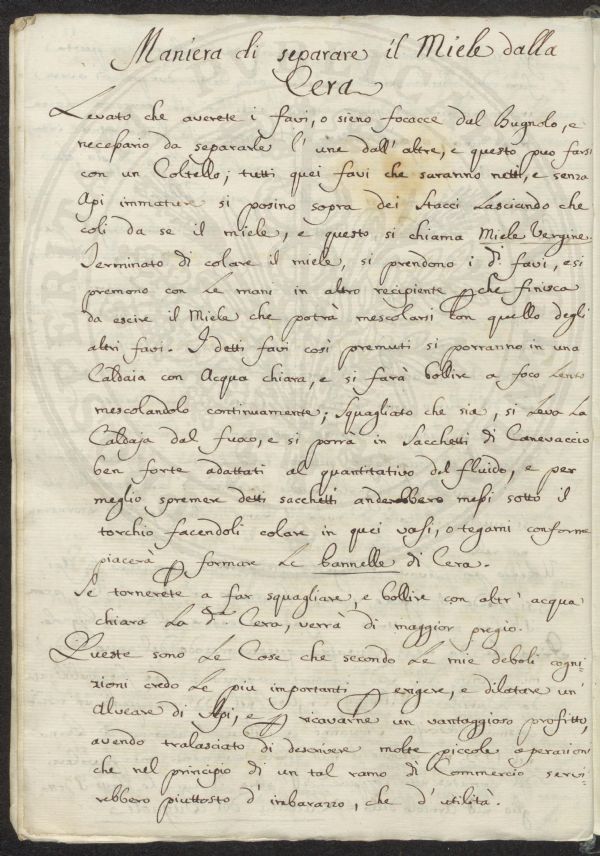 Maniera di separare il Miele dalla
Cera
Levato che averete i favi, o sieno focacce dal Bugnolo, è
necessario da separarle l'une dall'altre, e questo può farsi
con un Coltello; tutti quei favi che saranno netti, e senza
Api immature si posino sopra dei Stacci Lasciando che
coli da se il miele, e questo si chiama Miele Vergine.
Terminato di colare il miele, si prendono i d.i favi, e si
premono con Le mani in altro recipiente pche finisca
da escire il Miele che potrà mescolarsi con quello degli
altri favi. I detti favi così premuti si porranno in una
Caldaia con Acqua chiara, e si farà bollire a foco Lento
mescolandolo continuamente; Squagliato che sia, si Leva La
Caldaja dal fuoco, e si porrà in Sacchetti di Canevaccio
ben forte adattati al quantitativo del fluido, e per
meglio spremere detti sacchetti anderebbero messi sotto il
torchio facendoli colare in quei vasi, o tegami conforme
piacerà p formare Le bannelle di Cera.
Se tornerete a far squagliare, e bollire con altr'acqua
chiara La d.a Cera, verrà di maggior pregio.
Queste sono Le Cose che secondo Le mie deboli cogni-
zioni credo Le più importanti p erigere, e dilatare un
Alveare di Api, e p ricavarne un vantaggioso profitto,
avendo tralasciato di descrivere molte piccole operazioni
che nel principio di un tal ramo di Commercio servi-
rebbero piuttosto d'imbarazzo, che d'utilità.